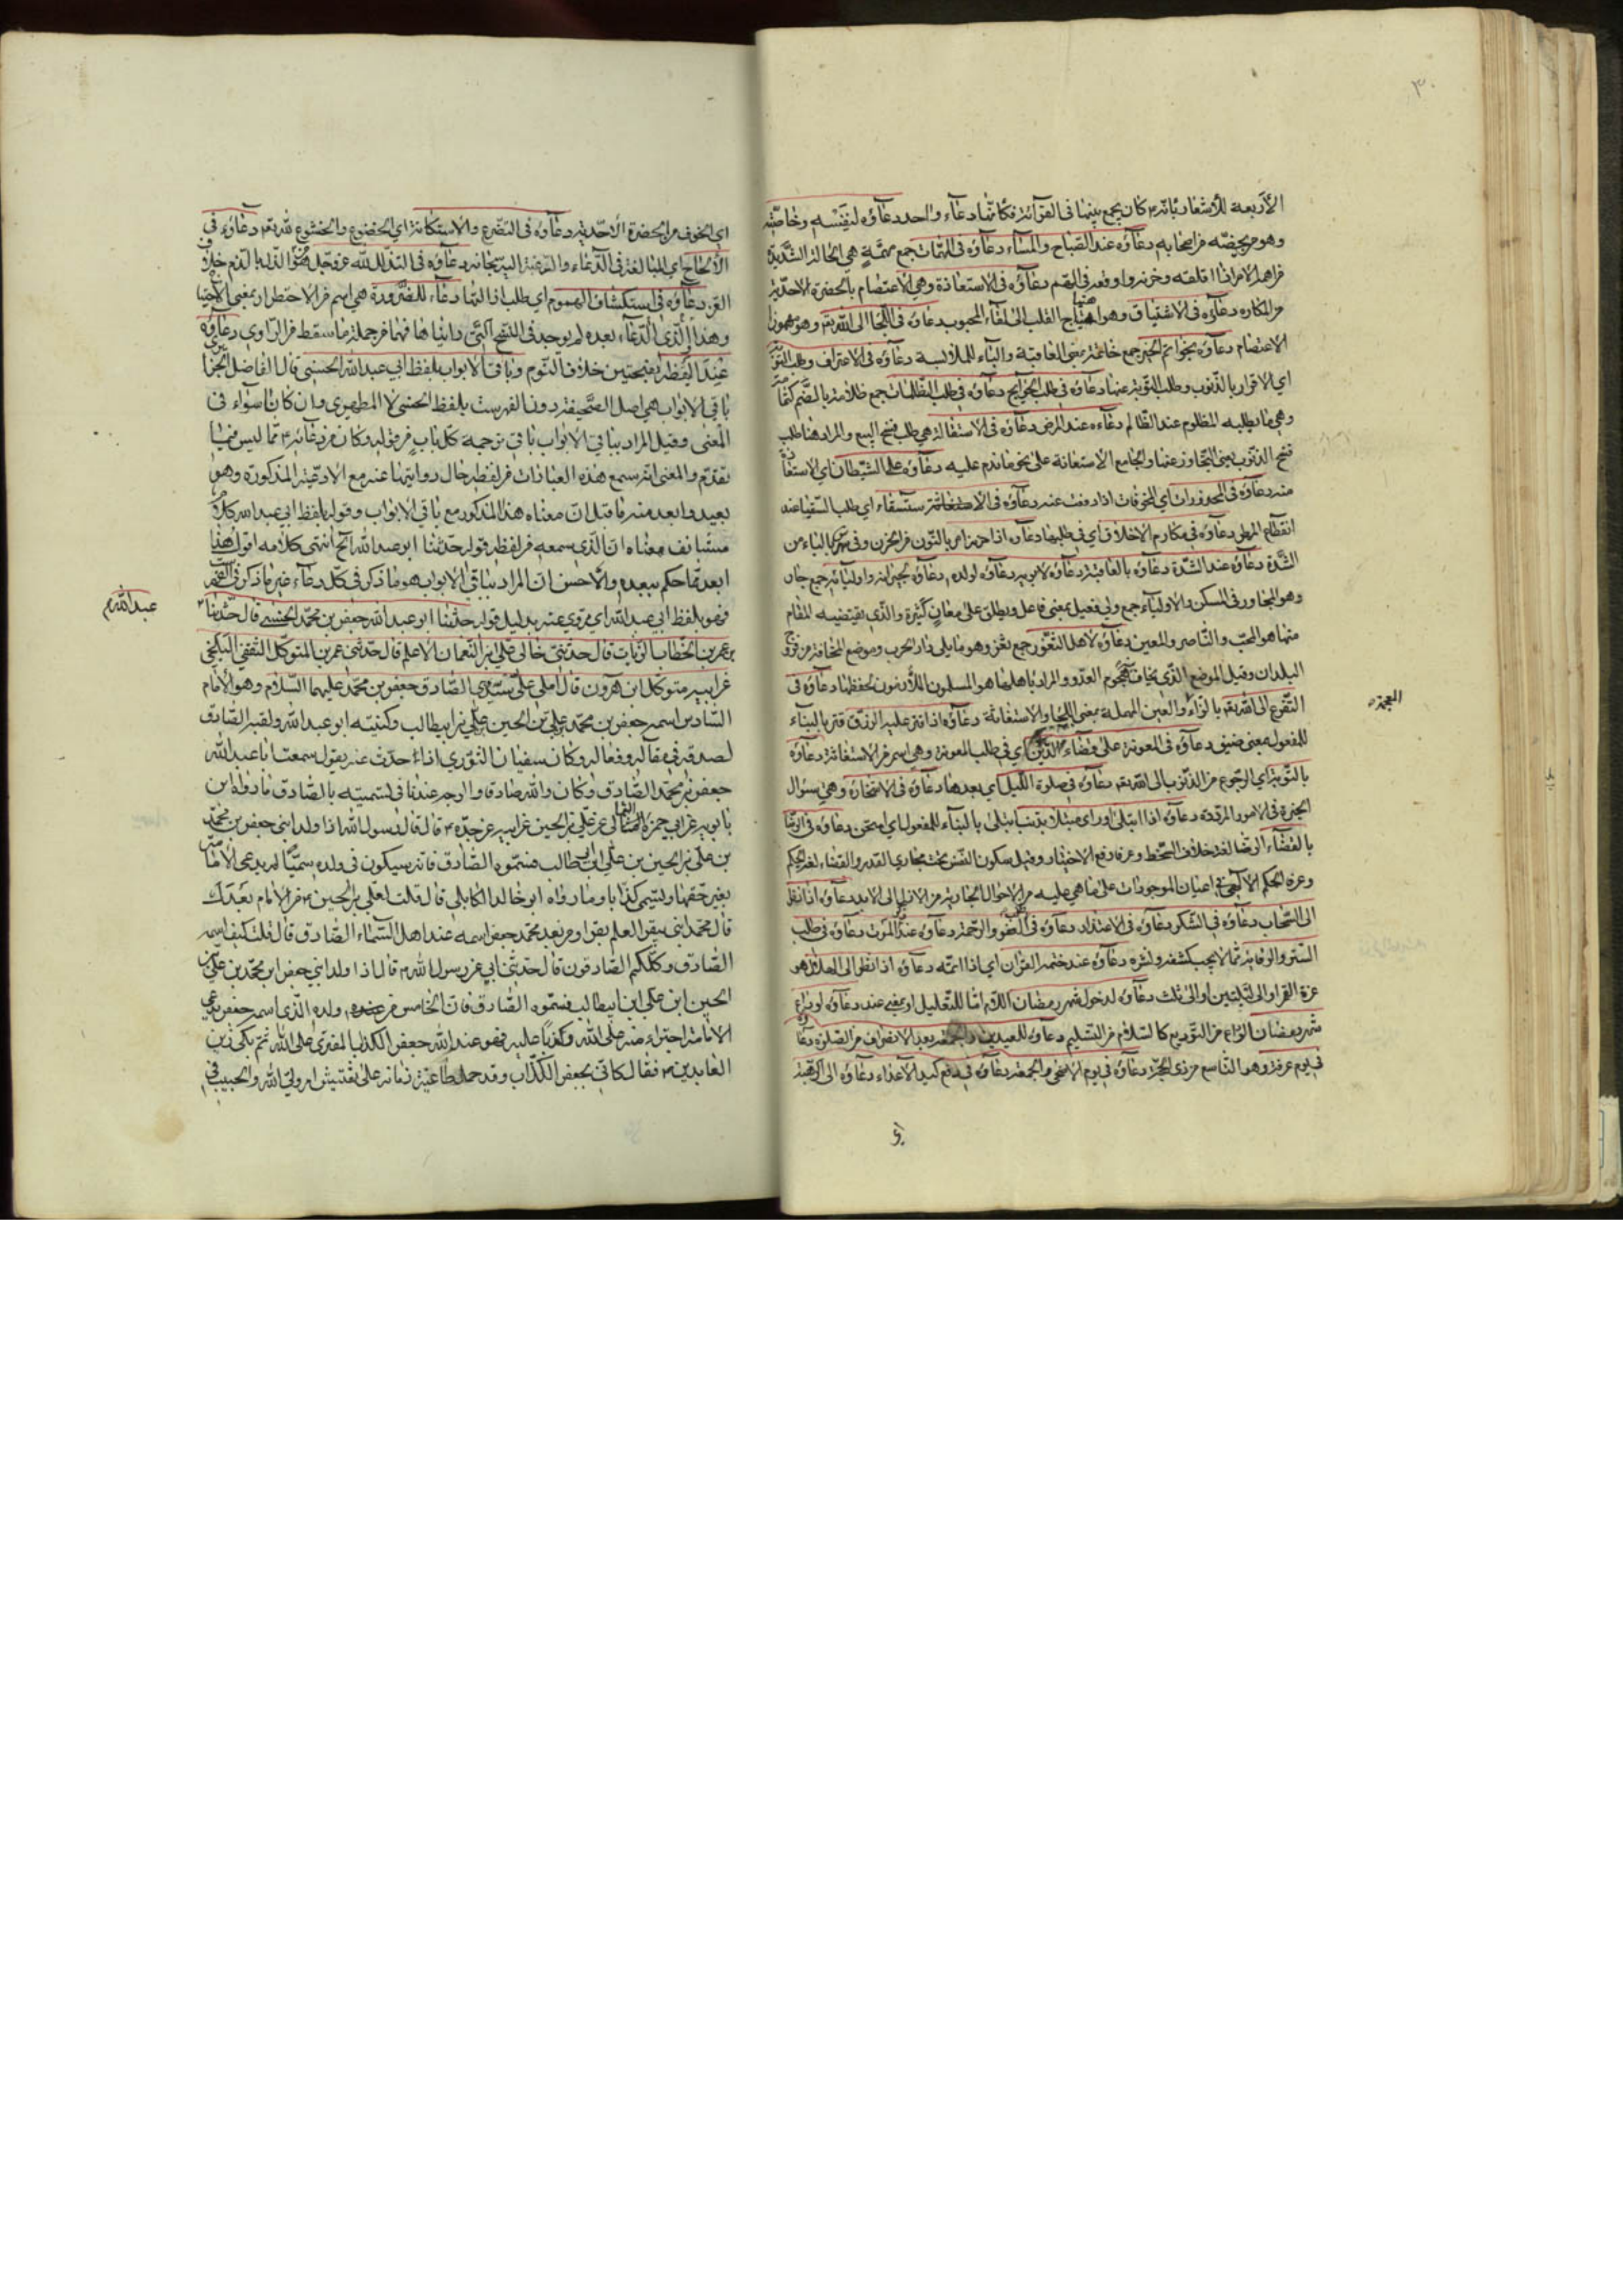 ٣٠
الأربعة للأشعار بانه كان يجمع بينها في القرآئة فكانها دعاء واحد دعاؤه لنفسه وخاصته
وهو من يخصه من اصحابه دعاؤه عند الصباح والمساء دعاؤه في المهمات جمع مهمة هي الحالة الشديدة
من اهمه الامر اذا اقلقه وحزنه واوقعه في الهم دعاؤه في الاستعاذة وهي الاعتصام بالحضرة الاحدية
من المكاره دعاؤه في الاشتياق وهو اهتياج القلب الى لقاء المحبوب دعاؤه في اللجأ الى الله تعالى وهو مهموزا
الاعتصام دعاؤه بخواتم الخير جمع خاتمة بمعنى العاقبة والباء للملابسة دعاؤه في الاعتراف وطلب التوبة
اي الاقرار بالذنوب وطلب التوبة عنها دعاؤه في طلب الحوائج دعاؤه في الظلمات جمع ظلامة بالضم
وهي ما يطلبه المظلوم عند الظالم دعاءه عند المرض دعاؤه في الاستقالة هي طلب فسخ البيع والمراد هنا طلب
فسخ الذنوب بمعنى التجاوز عنها والجامع الاستعانة على نحو ما ندم عليه دعاؤه على الشيطان اي الاستعاذة
منه دعاؤه في المحذورات اي المخوفات اذا دفعت عنه دعاؤه في الاستسقاء اي طلب السقيا عند
انقطاع المطر دعاؤه في مكارم الاخلاق اي في طلبها دعاؤه اذا حزنه امر بالنون من الحزن وفي بالباء من
الشدة دعاؤه عند الشدة دعاؤه بالعافية دعاؤه لابويه دعاؤه لولده دعاؤه لجيرانه واوليائه جمع جار
وهو المجاور في المسكن والاولياء جمع ولي فعيل بمعنى فاعل ويطلق على معان كثيرة والذي يقتضيه المقام
منها هو المحب والناصر والمعين دعاؤه لاهل الثغور جمع ثغر وهو ما يلي دار الحرب وموضع المخافة من فروج
البلدان وقيل الموضع الذي يخاف هجوم العدو والمراد باهلها هو المسلمون الملازمون لحفظها دعاؤه في
التفزع الى الله تعالى بالزاء والعين المهملة بمعنى اللجأ والاستغاثة دعاؤه اذا قتر عليه الرزق قتر بالبناء
المعجمة
للمفعول بمعنى ضيق دعاؤه في المعونة على قضاء الدين اي في طلب المعونة وهي اسم من الاستعانة دعاؤه
بالتوبة اي الرجوع من الذنوب الى الله تعالى دعاؤه في صلوة الليل اي بعدها دعاؤه في الاستخارة وهي سؤال
الخيرة في الامور المرددة دعاؤه اذا ابتلى او راى مبتلا بذنب ابتلى بالبناء للمفعول اي امتحن دعاؤه في الرضا
بالقضاء الرضا لغة خلاف السخط وعرفا رفع الاختيار وقيل سكون النفس تحت مجاري القدر والقضاء لغة الحكم
وعرفا الحكم الالهي في اعيان الموجودات على ما هي عليه من الاحوال الجارية من الازل الى الابد دعاؤه اذا نظر
الى السحاب دعاؤه في الشكر دعاؤه في الاعتذار دعاؤه في العفو والرحمة دعاؤه عند الموت دعاؤه في طلب
الستر والوقاية مما لا يجب كشفه ونشره دعاؤه عند ختمه القران اي اذا اتمه دعاؤه اذا نظر الى الهلال هو
غرة القمر او الى ليلتين او الى ثلث دعاؤه لدخول شهر رمضان اللام اما للتعليل او بمعنى عند دعاؤه لوداع
شهر رمضان الوداع من التوديع كالسلام من التسليم دعاؤه للعيدين والجمعة بعد الانصراف من الصلوة دعاؤه
في يوم عرفة وهو التاسع من ذي الحجة دعاؤه في يوم الاضحى والجمعة دعاؤه في دفع كيد الاعداء دعاؤه في الرهبة
اي الخوف من الحضرة الاحدية دعاؤه في التضرع والاستكانة اي الخضوع والخشوع لله تعالى دعاؤه في
الالحاح اي المبالغة في الدعاء والرغبة اليه سبحانه دعاؤه في التذلل لله عز وجل خلاف
العز دعاؤه في استكشاف الهموم اي طلب اذالتها دعاء للضرورة هي اسم من الاضطرار بمعنى الاحتياج
وهذا الذي الدعاء بعده لم يوجد في النسخ التي رايناها فهما من جملة ما سقط من الراوي دعاؤه
عند اليقظة بفتحتين خلاف النوم وباقي الابواب بلفظ ابي عبد الله الحسني قال الفاضل الجزائري
باقي الابواب هي اصل الصحيفة دون الفهرست بلفظ الحسني لا المطهري وان كانا سواء في
المعنى وقيل المراد بباقي الابواب باقي ترجمة كل باب من قوله وكان من دعائه مما ليس فيما
تقدم والمعنى انه سمع هذه العبارات من لفظه حال روايتها عنه مع الادعية المذكورة وهو
بعيد وابعد منه ما قيل ان معناه هذا المذكور مع باقي الابواب وقوله بلفظ ابي عبد الله كلام
مستانف معناه ان الذي سمعه من لفظه قوله حدثنا ابو عبد الله الخ انتهى كلامه اقول هذا
ابعد مما حكم ببعده والاحسن ان المراد بباقي الابواب هو ما ذكر في كل دعاء غير ما ذكر في الفهرست
فهو بلفظ ابي عبد الله اي مروي عنه بدليل قوله حدثنا ابو عبد الله جعفر بن محمد الحسني قال حدثنا
عبد الله
بن عمر بن الخطاب الزيات قال حدثني خالي علي بن النعمان الاعلم قال حدثني عمير بن المتوكل الثقفي البلخي
عن ابيه متوكل ابن هرون قال املى علي سيدي الصادق جعفر بن محمد عليهما السلام وهو الامام
السادس اسمه جعفر بن محمد بن علي بن الحسين بن علي بن ابيطالب وكنيته ابو عبد الله ولقبه الصادق
لصدقه في مقاله وفعاله وكان سفيان الثوري اذا حدث عنه يقول سمعت ابا عبد الله
جعفر بن محمد الصادق وكان والله صادقا والوجه عندنا في تسميته بالصادق ما رواه ابن
بابويه عن ابي حمزة الثمالي عن علي بن الحسين عن ابيه عن جده قال قال رسول الله اذا ولد ابني جعفر بن محمد
بن علي بن الحسين بن علي بن ابي طالب فسموه الصادق فانه سيكون في ولده سميا له يدعي الامامة
بغير حقها ويسمى كذابا وما رواه ابو خالد الكابلي قال قلت لعلي بن الحسين من الامام بعدك
قال محمد ابني يبقر العلم بقرا ومن بعد محمد جعفر اسمه عند اهل السماء الصادق قال قلت كيف اسمه
الصادق وكلكم الصادقون قال حدثني ابي عن رسول الله قال اذا ولد ابني جعفر ابن محمد بن علي بن
الحسين ابن علي ابن ابيطالب فسموه الصادق فان الخامس من ولده الذي اسمه جعفر يدعي
الامامة اجتراء منه على الله وكذبا عليه فهو عند الله جعفر الكذاب المفتري على الله ثم بكى زين
العابدين فقال كاني بجعفر الكذاب وقد حمل طاغية زمانه على تفتيش امر ولي الله والحبيب في